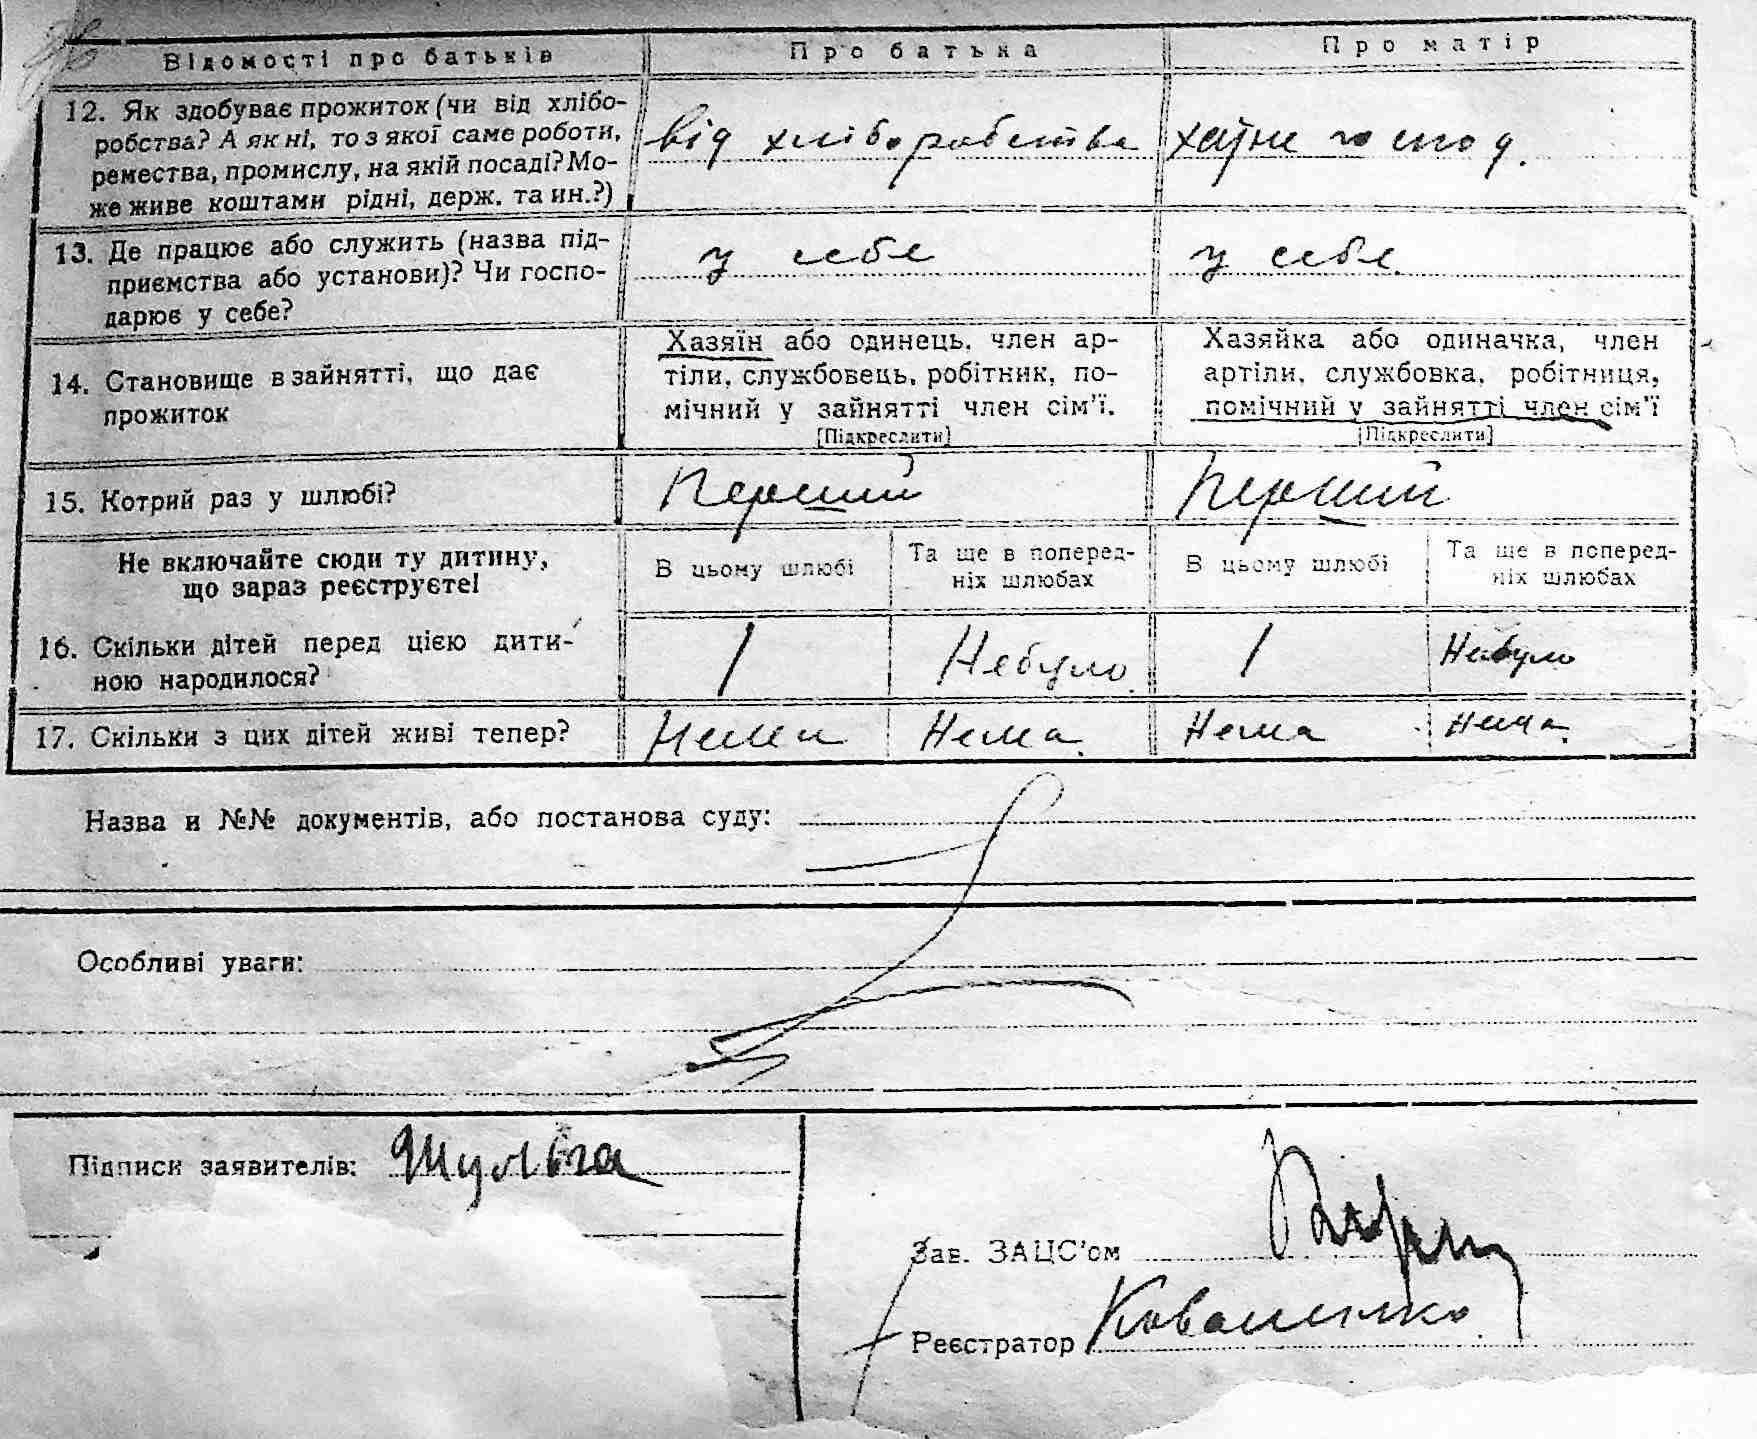 Відомості про батьків
Про батька
Про матір
12. Як здобуває прожиток (чи від хлібо-
робства? А як ні, то з якої саме роботи,
ремества, промислу, на якій посаді? Мо-
же живе коштами рідні, держ. та ин.?)
від хліборобства
хатне господ.
13. Де працює або служить (назва під-
приємства або установи)? Чи госпо-
дарює у себе?
у себе
у себе
14. Становище в зайнятті, що дає
прожиток
Хазяїн або одинець, член ар-
тіли, службовець, робітник, по-
мічний у зайнятті член сім'ї.
[Підкреслити]
Хазяйка або одиначка, член
артіли, службовка, робітниця,
помічний у зайнятті член сім'ї
[Підкреслити]
15. Котрий раз у шлюбі?
Перший
Перший
Не включайте сюди ту дитину,
що зараз реєструєте!
В цьому шлюбі
Та ще в поперед-
ніх шлюбах
В цьому шлюбі
Та ще в поперед-
ніх шлюбах
16. Скільки дітей перед цією дити-
ною народилося?
1
Небуло
1
Небуло
17. Скільки з цих дітей живі тепер?
Нема
Нема.
Нема
Нема.
Назва и №№ документів, або постанова суду:
Особливі уваги:
Підписи заявителів: Шульга
Зав. ЗАЦС'ом
Реєстратор Коваленко